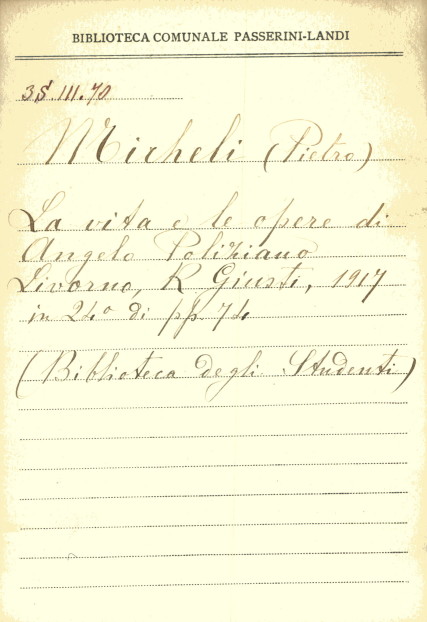 BIBLIOTECA COMUNALE PASSERINI-LANDI
3S.III.70
Micheli (Pietro)
La vita e le opere di
Angelo Poliziano
Livorno, R Giusti, 1917
in 24º di pp. 74
(Biblioteca degli Studenti)